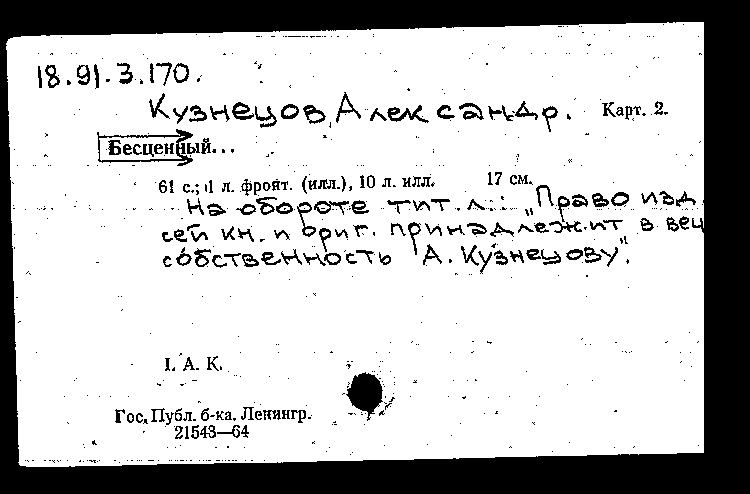 18.91.3.170.
Кузнецов, Александр. Карт. 2.
Бесценный...
61 с.; 1 л. фронт. (илл.), 10 л. илл. 17 см.
На обороте тит. л.: „Право изд
сей кн. и ориг. принадлежит в веч
собственность А. Кузнецову".
I. А. К.
Гос. Публ. б-ка. Ленингр.
21543—64